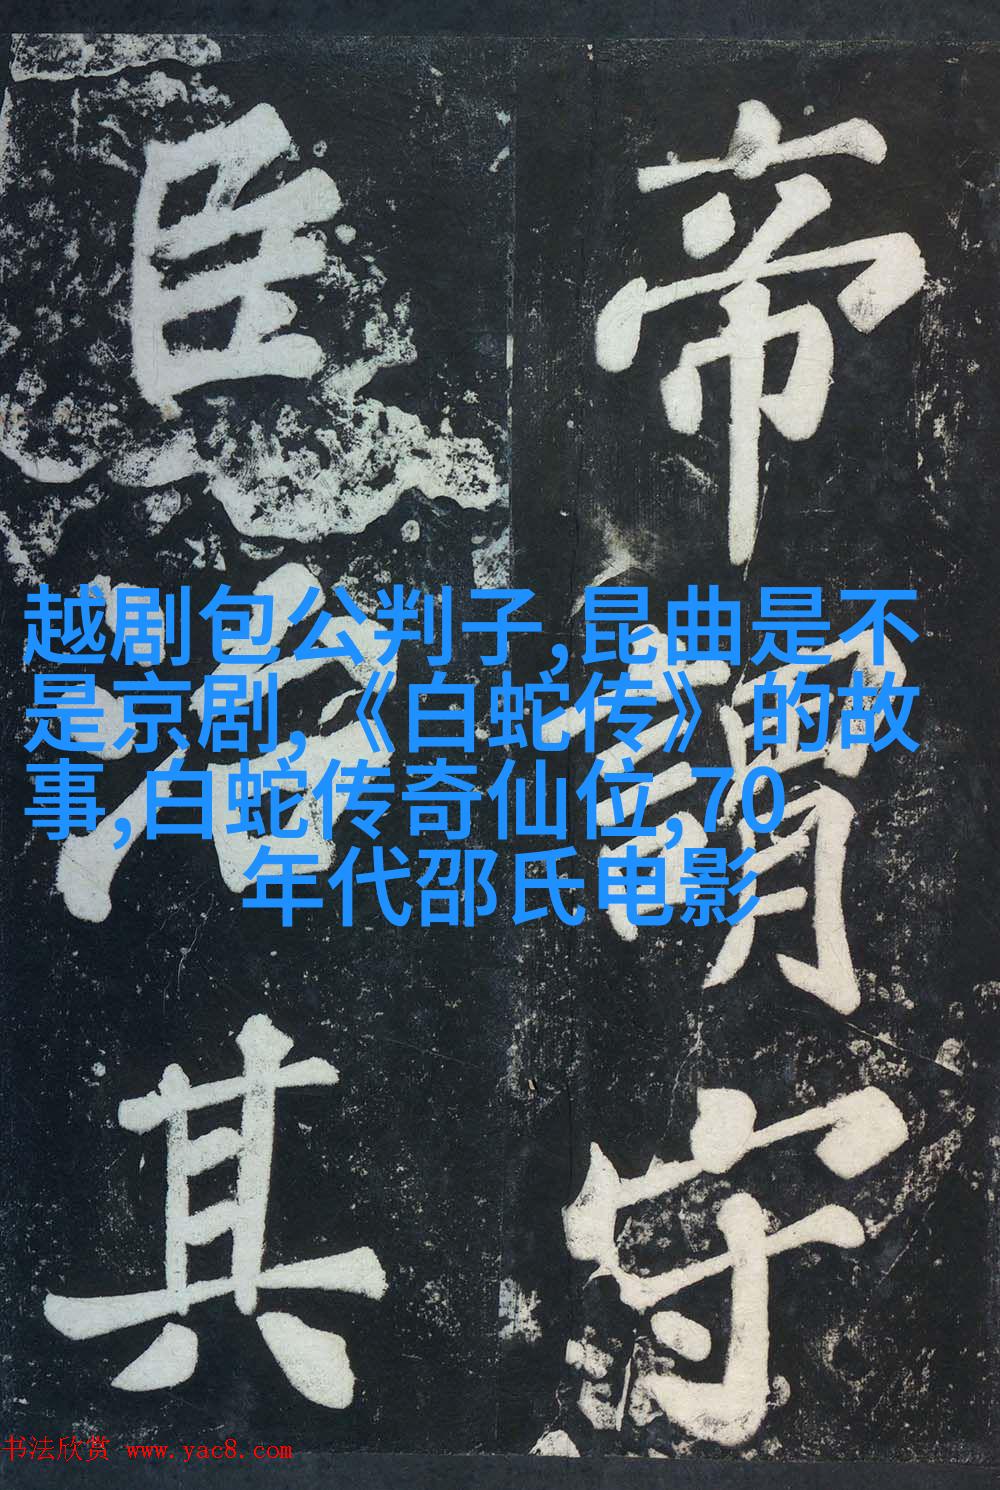 帝謂守
臣治其
越剧包公判子,昆曲是不
是京剧,《白蛇传》的故
事,白蛇传奇仙位,70
年代邵氏电影
书法欣赏 www.yac8.com